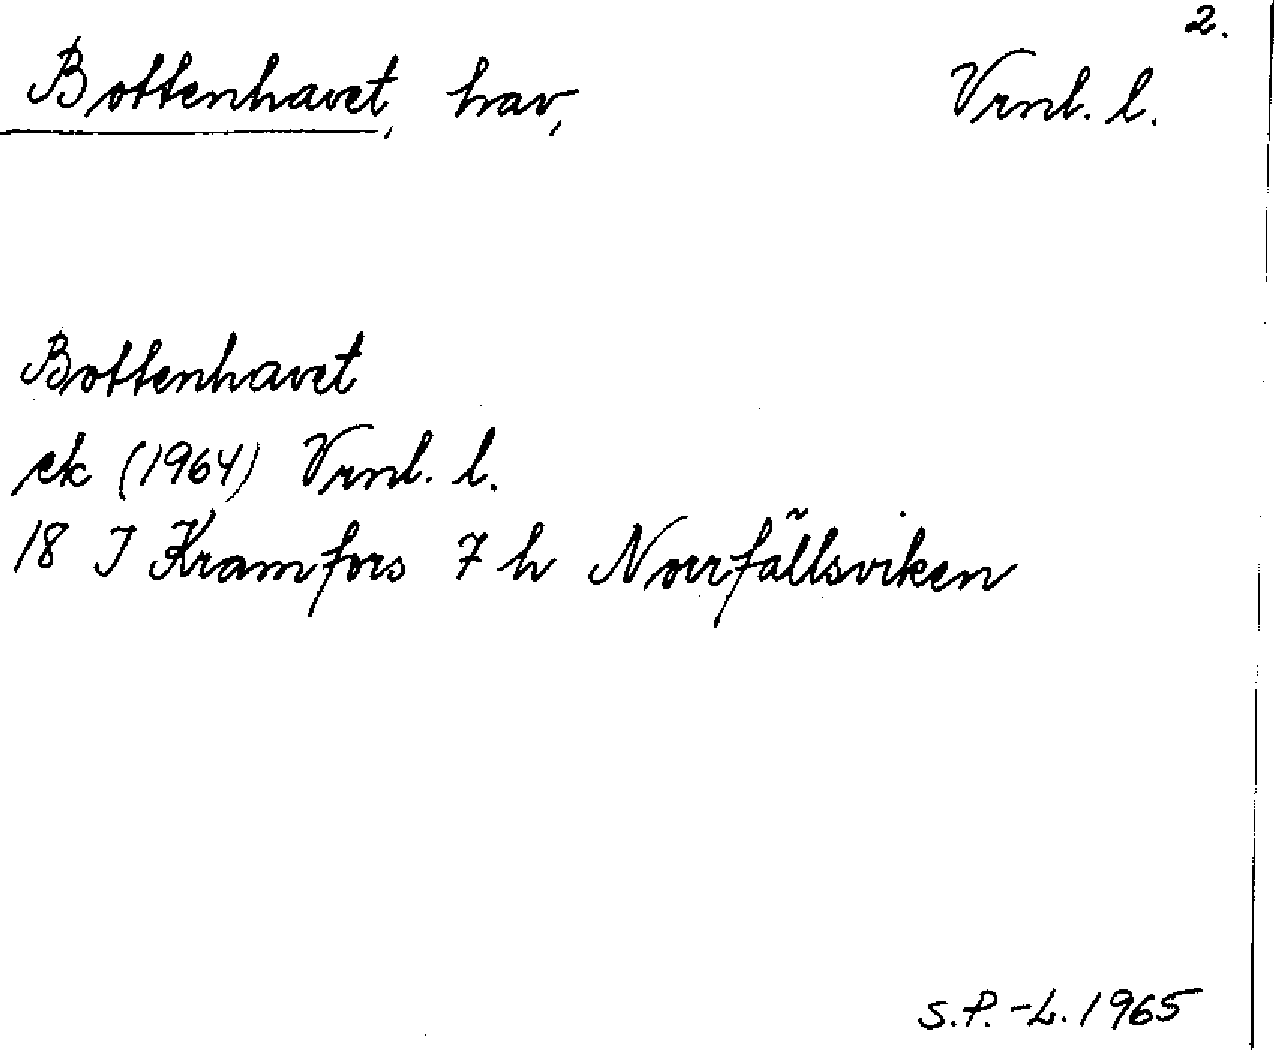 2.
Bottenhavet, hav, Vrnl. l.
Bottenhavet
ek (1964) Vrnl. l.
18 J Kramfors 7 h Norrfällsviken
S.P.-L. 1965